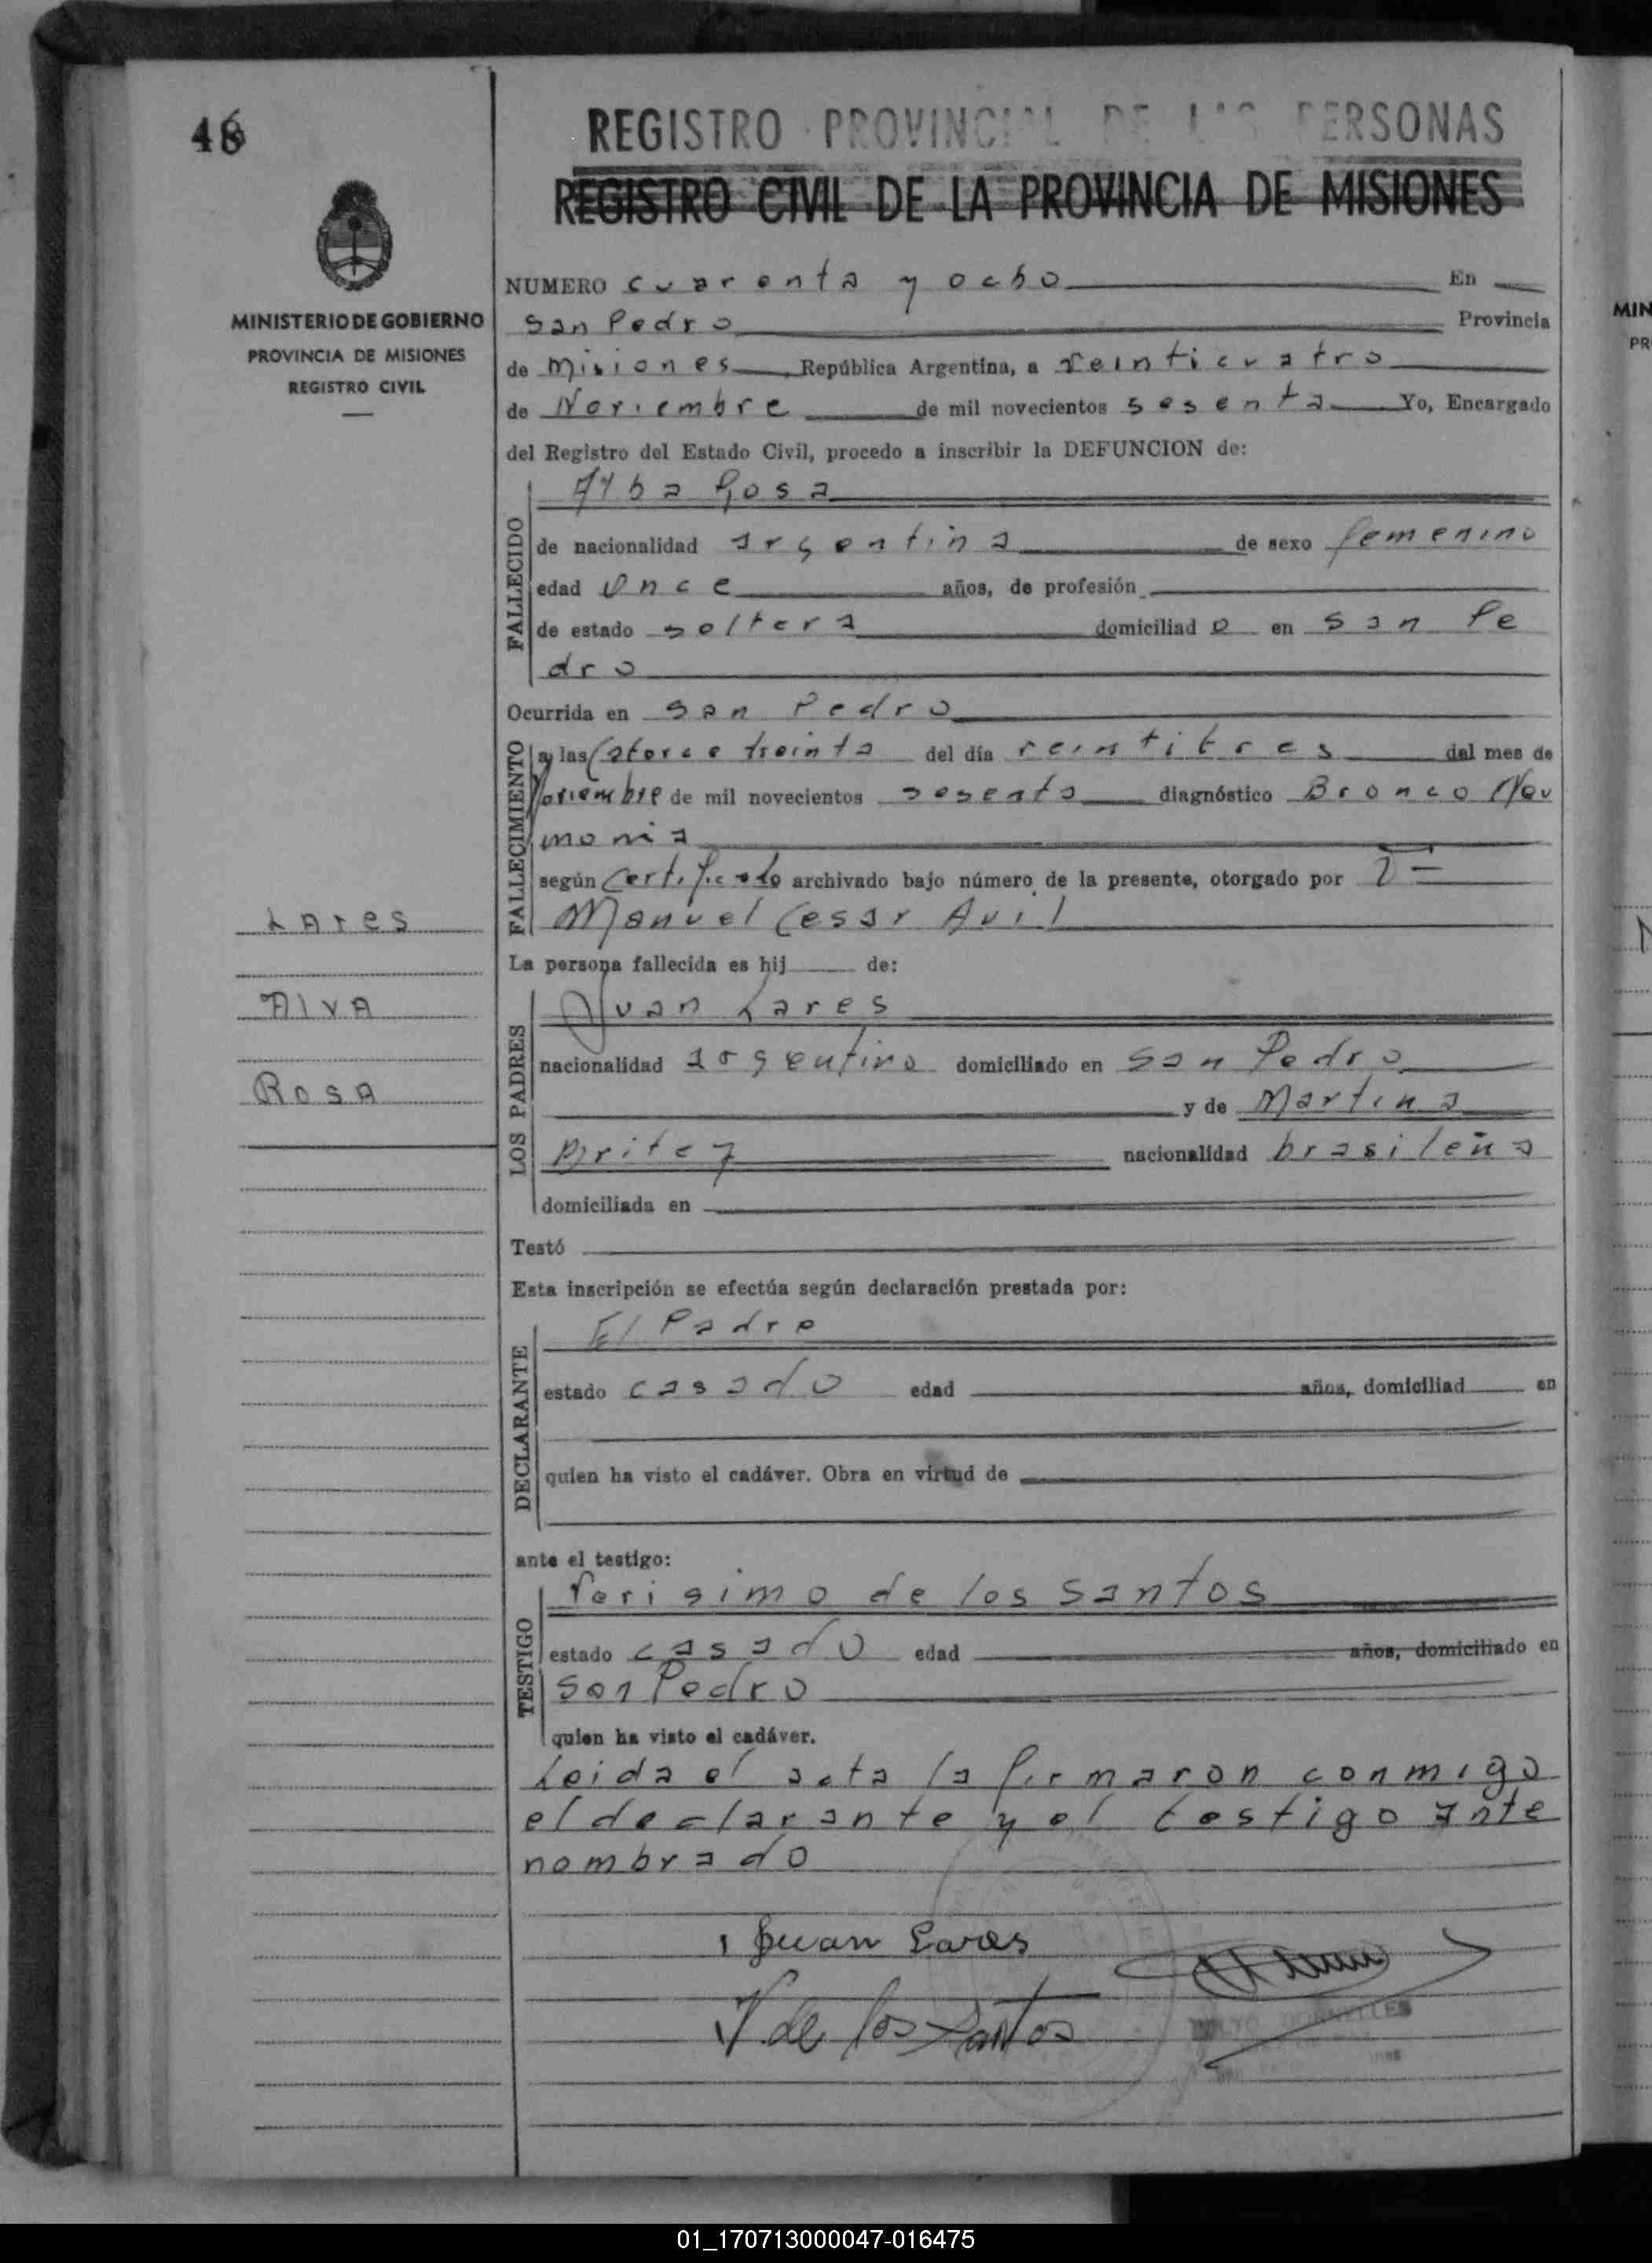 48
REGISTRO PROVINCIAL DE LAS PERSONAS
REGISTRO CIVIL DE LA PROVINCIA DE MISIONES
MINISTERIO DE GOBIERNO
PROVINCIA DE MISIONES
REGISTRO CIVIL
NUMERO cuarenta y ocho En
San Pedro Provincia
de Misiones, República Argentina, a veinticuatro
de Noviembre de mil novecientos sesenta Yo, Encargado
del Registro del Estado Civil, procedo a inscribir la DEFUNCION de:
FALLECIDO
Alba Rosa
de nacionalidad argentina de sexo femenino
edad Once años, de profesión
de estado soltera domiciliad o en San Pe
dro
Ocurrida en San Pedro
FALLECIMIENTO
a las Catorce treinta del día veintitres del mes de
Noviembre de mil novecientos sesenta diagnóstico Bronco Neu
monia
según Certificado archivado bajo número de la presente, otorgado por
Manuel Cesar Avil
La persona fallecida es hij de:
LOS PADRES
Juan Lares
nacionalidad argentino domiciliado en San Pedro
y de Martina
Britez nacionalidad brasileña
domiciliada en
Testó
Esta inscripción se efectúa según declaración prestada por:
DECLARANTE
El Padre
estado casado edad años, domiciliad en
quien ha visto el cadáver. Obra en virtud de
ante el testigo:
TESTIGO
Verisimo de los Santos
estado casado edad años, domiciliado en
San Pedro
quien ha visto el cadáver.
Leida el acta la firmaron conmigo
el declarante y el testigo ante
nombrado
Juan Lares
V. de los Santos
LAres
AlvA
RosA
MIN
PR
01_170713000047-016475